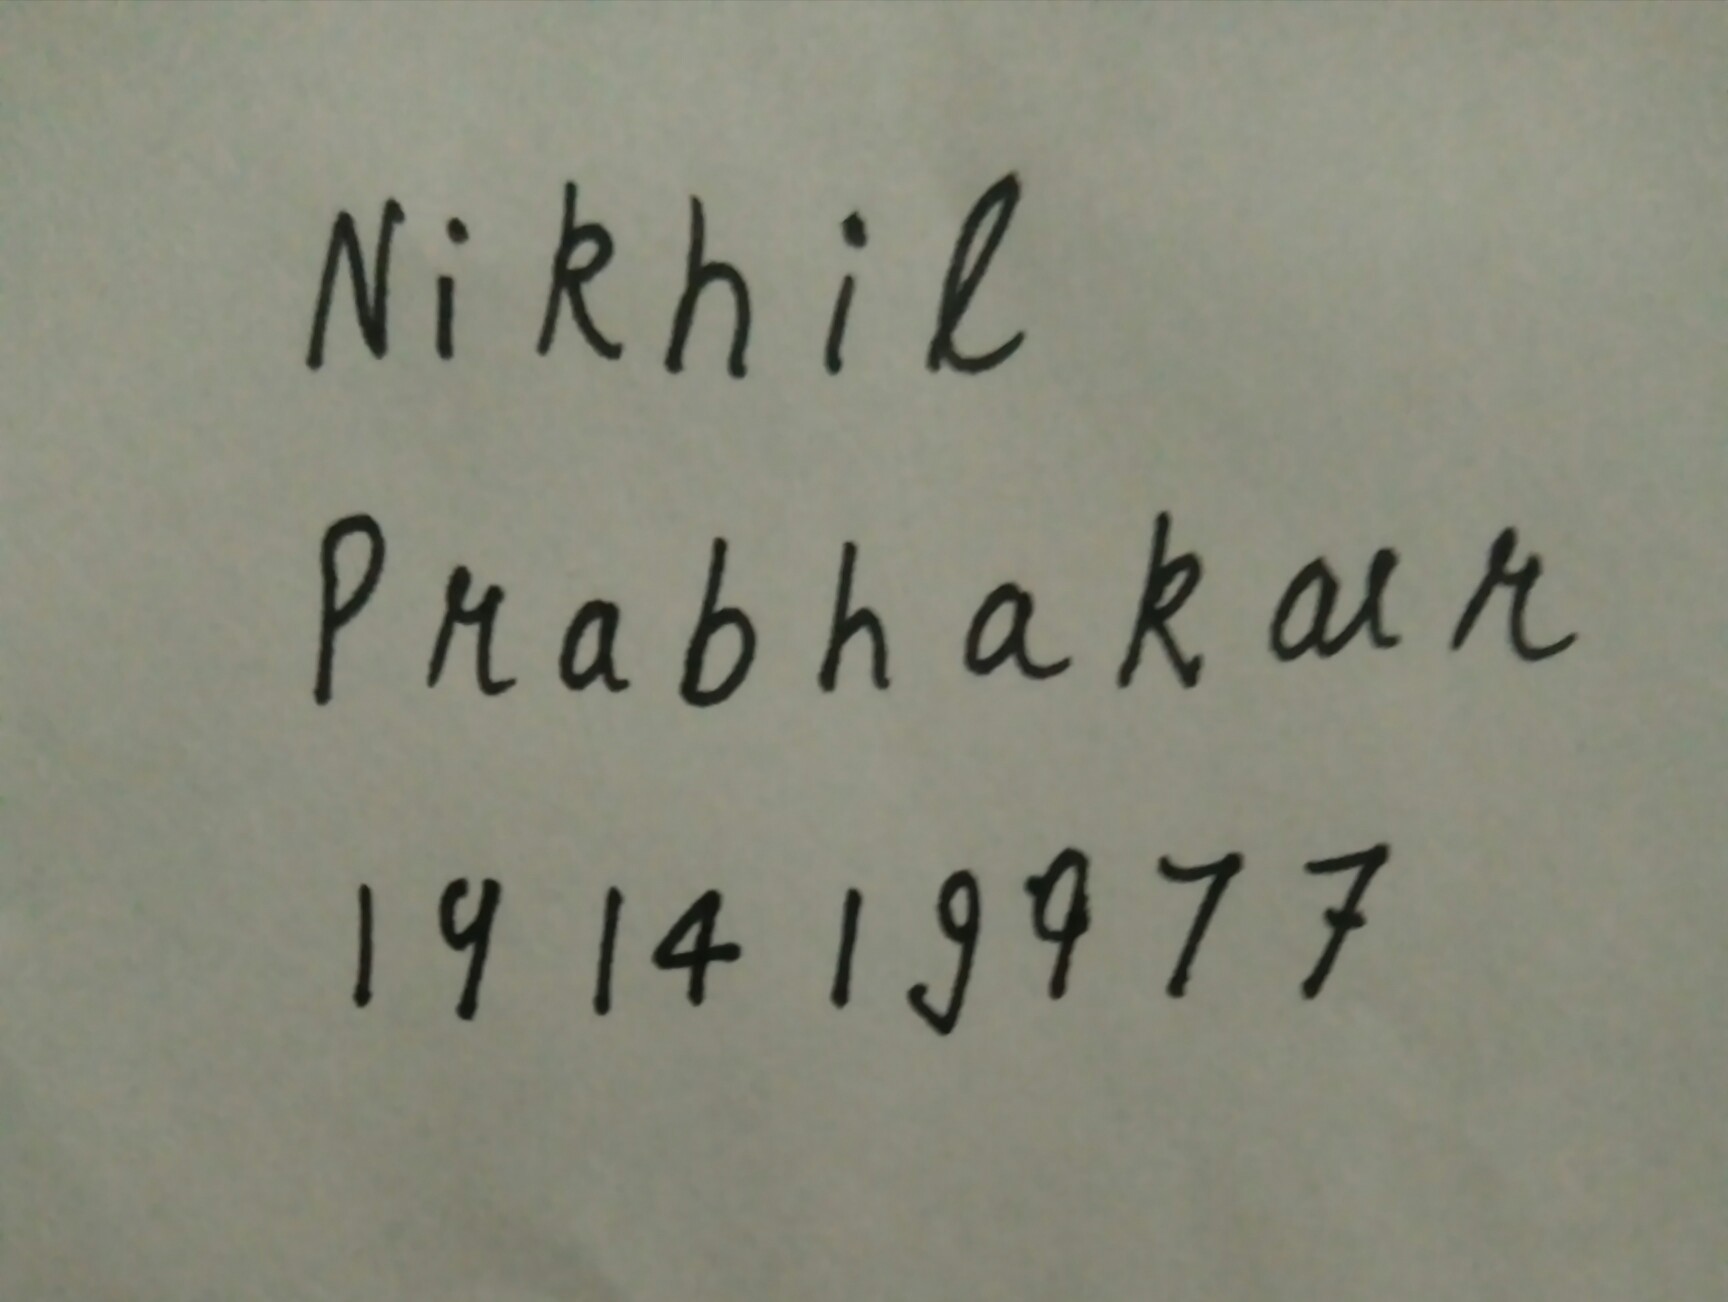 Nikhil
Prabhakar
191419977